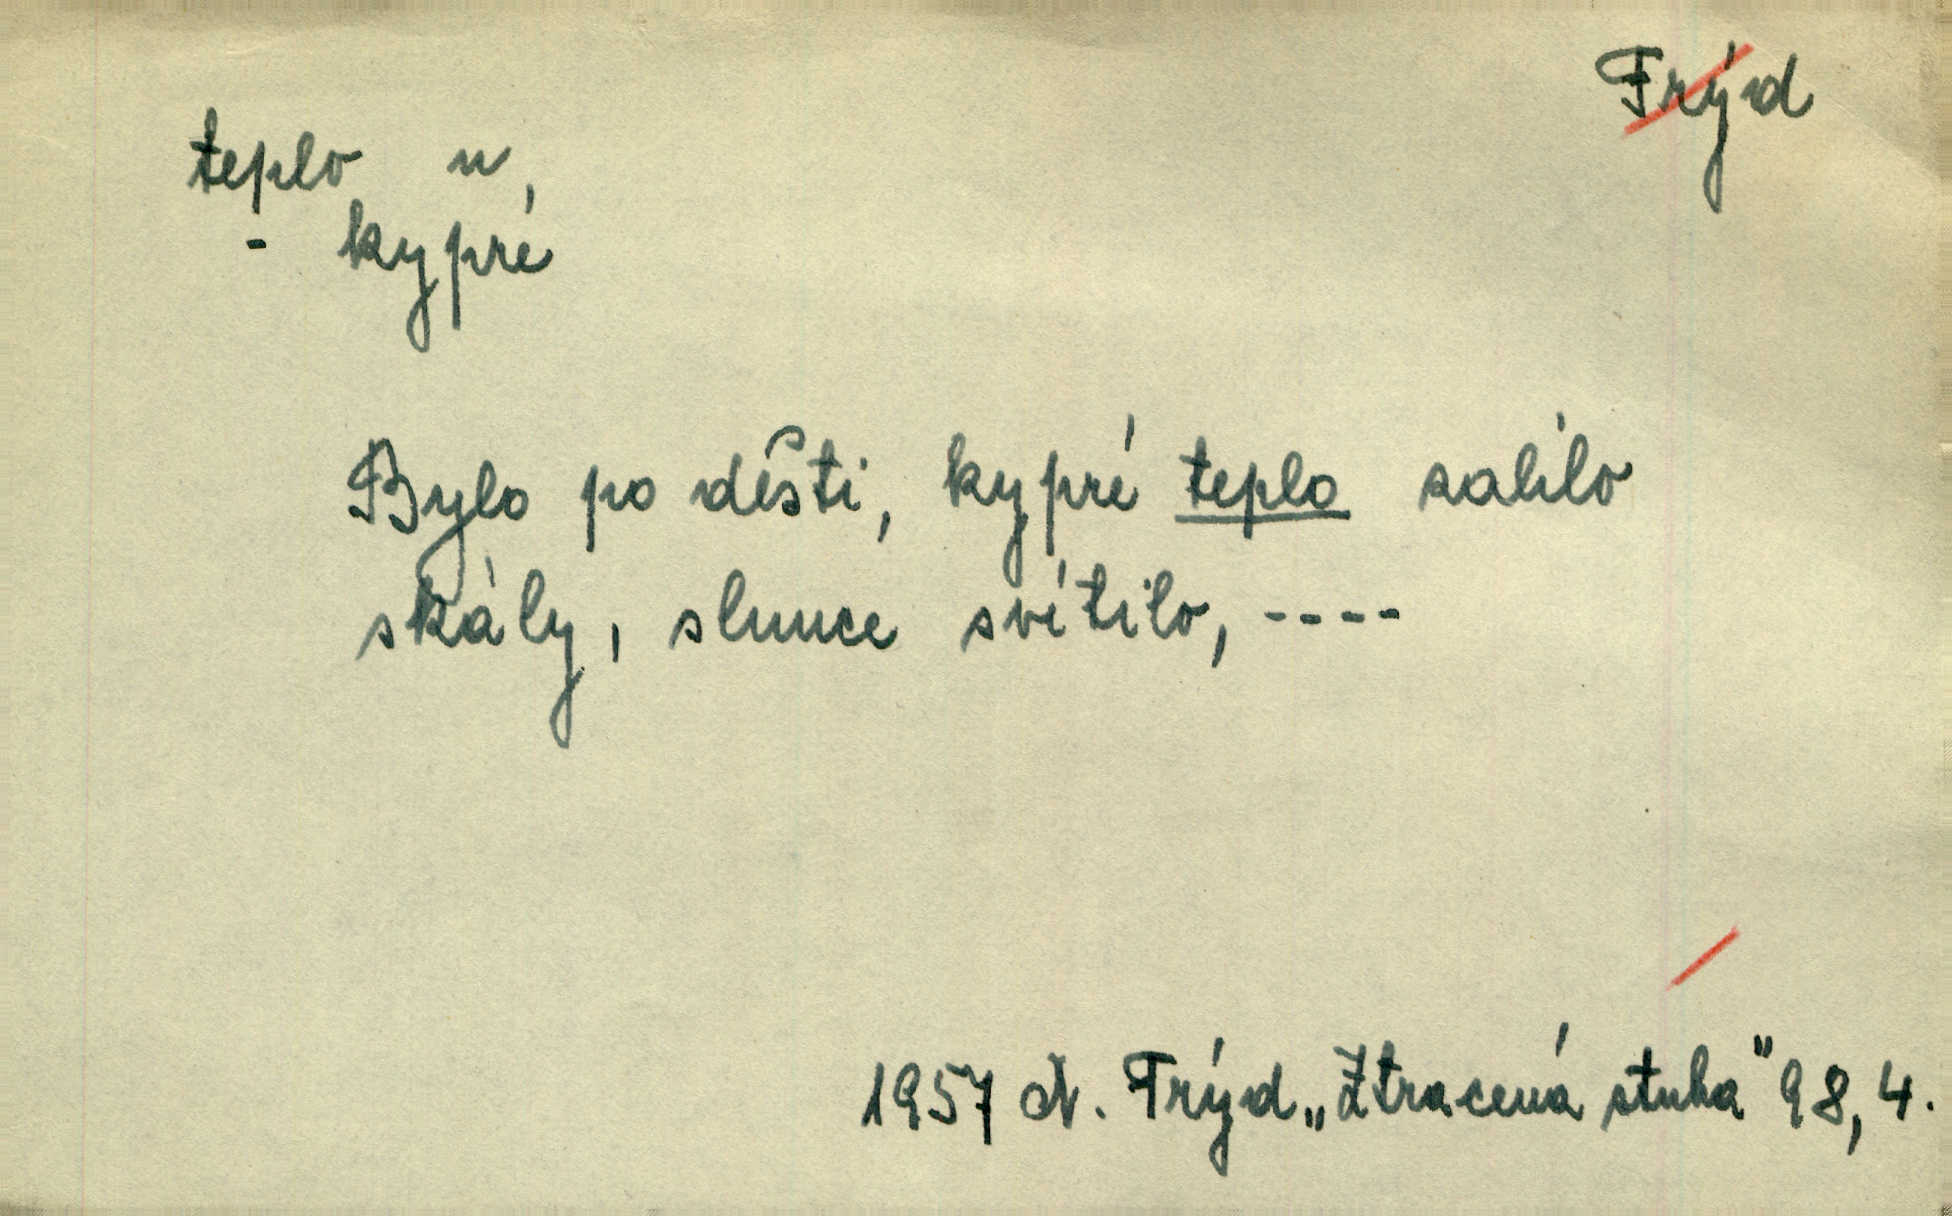 Frýd
teplo n,
- kypré
Bylo po dešti, kypré teplo zalilo
skály, slunce svítilo, ----
1957 N. Frýd „Ztracená stuha" 98, 4.